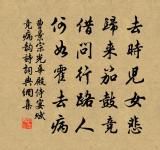 去時兒女悲
歸來笳鼓竞
借問行路人
何如霍去病
曹景宗光華殿侍宴賦
竞病韵詩詞典網集